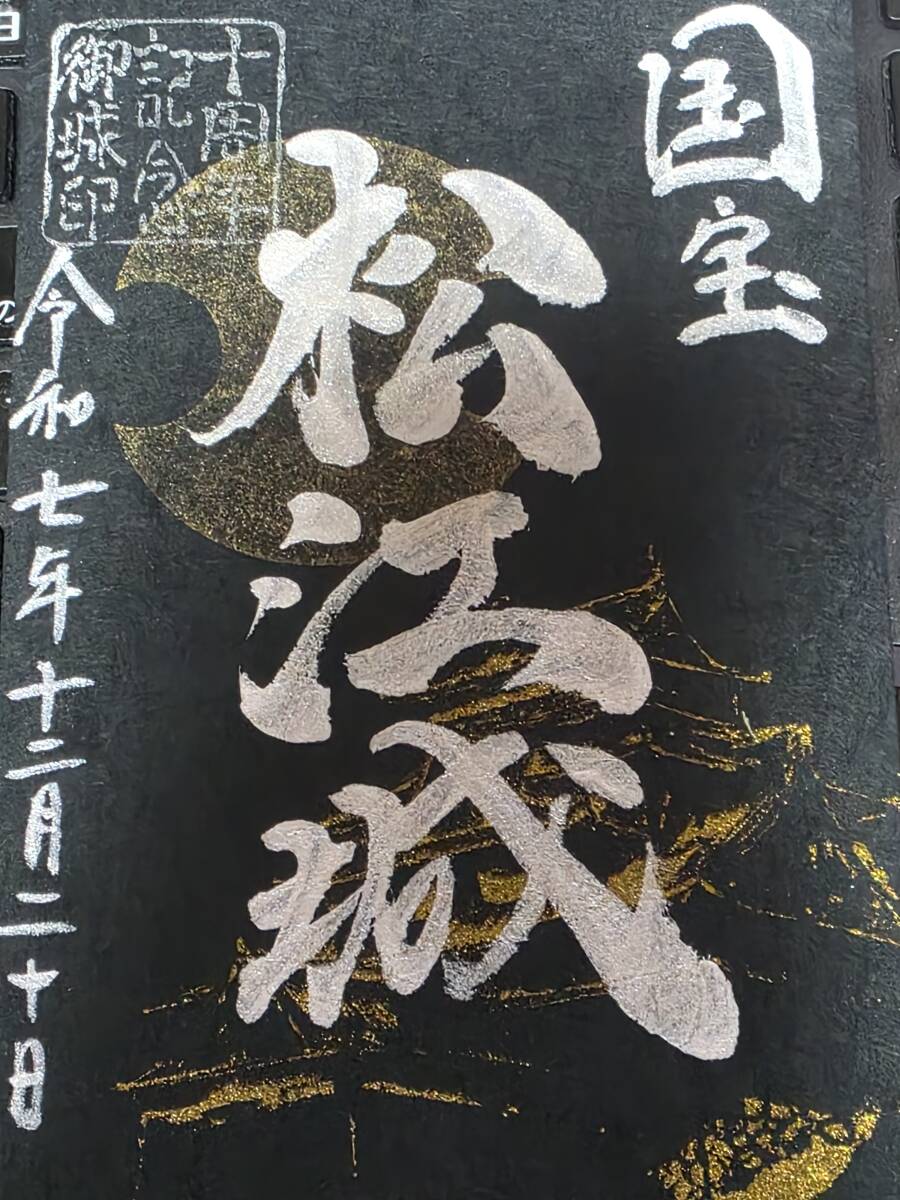 国宝
松江城
十周年
記念
御城印
令和七年十二月二十日